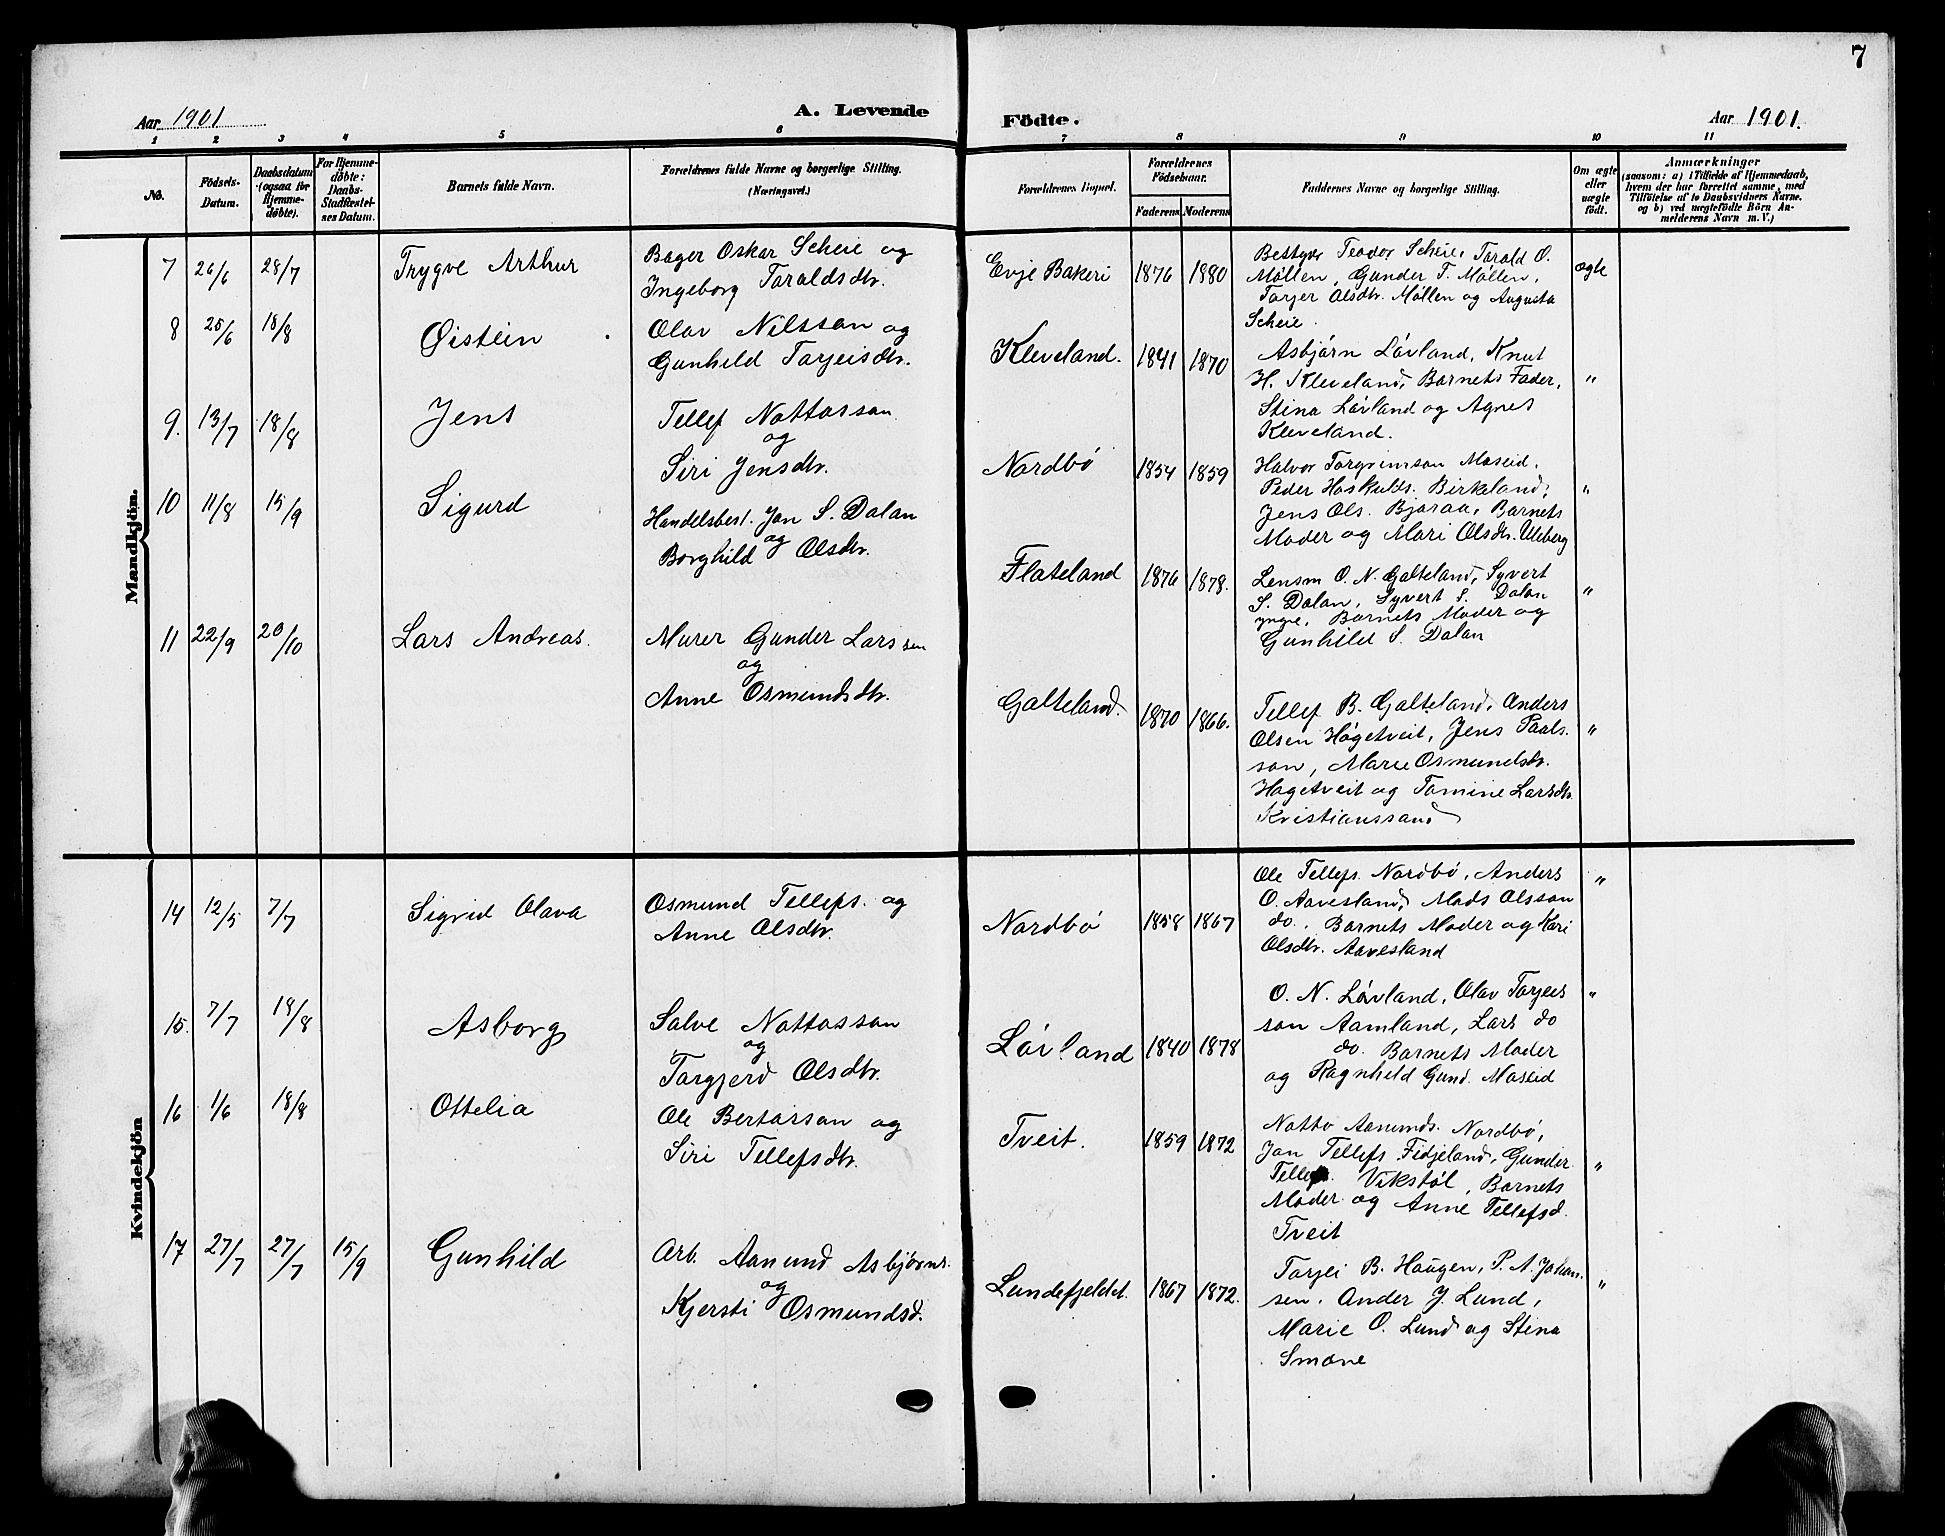 7
Aar 1901
A. Levende
Födte.
Aar 1901.
1 2 3 4 5 6 7 8 9 10 11
No.
Födsels-Datum.
Daabsdatum (ogsaa for Hjemmedöbte).
For Hjemmedöbte: Daabs-Stadfæstelses Datum.
Barnets fulde Navn.
Forældrenes fulde Navne og borgerlige Stilling.
(Næringsvei.)
Forældrenes Bopæl.
Forældrenes Födselsaar.
Faderens Moderens
Faddernes Navne og borgerlige Stilling.
Om ægte eller uægte født.
Anmærkninger
(saasom: a) i Tilfælde af Hjemmedaab,
hvem der har forrettet samme, med
Tilföielse af to Daabsvidners Navne.
og b) ved uægtefödte Börn An-
melderens Navn m. V.)
Mandkjön.
7 26/6 28/7 Trygve Arthur
Bager Oskar Scheie og
Ingeborg Taraldsdtr.
Evje Bakeri 1876 1880
Bestyr. Teodor Scheie, Tarald O.
Möllen, Gunder T. Möllen,
Tarjer Olsdtr. Möllen og Augusta
Scheie.
ægte
8 25/6 18/8 Øistein
Olav Nilsson og
Gunhild Tarjeisdtr.
Kleveland. 1841 1870
Asbjörn Lövland, Knut
H. Kleveland, Barnets Fader,
Stina Lövland og Agnes
Kleveland.
"
9. 13/7 18/8 Jens
Tellef Nottosson
og
Siri Jensdtr.
Nordbö 1854 1859
Halvor Torgrimson Moseid,
Peder Hoskulds. Birkeland,
Jens Ols. Bjoraa, Barnets
Moder og Mari Olsdtr. Uleberg
"
10 11/8 15/9 Sigurd
Handelsbest. Jon S. Dalan
og
Borghild Olsdtr.
Flateland 1876 1878.
Lensm O. N. Galteland, Syvert
S. Dalan, Syvert S. Dalan
yngre, Barnets Moder og
Gunhild S. Dalan
"
11 22/9 20/10 Lars Andreas.
Murer Gunder Larssen
og
Anne Osmundsdtr.
Galteland. 1870 1866.
Tellef B. Galteland, Anders
Olsen Högetveit, Jens Paals-
son, Marie Osmundsdtr.
Högetveit og Tomine Larsdtr.
Kristianssand
"
Kvindekjön
14 12/5 7/7 Sigrid Olava
Osmund Tellefs. og
Anne Olsdtr.
Nordbö 1858 1867
Ole Tellefs. Nordbö, Anders
O. Aavesland, Mads Olsson
do, Barnets Moder og Kari
Olsdtr. Aavesland
"
15. 7/7 18/8 Asborg
Salve Nottosson
og
Torgjerd Olsdtr.
Lövland 1840 1878
O. N. Lövland, Olav Tarjeis
son Aamland, Lars do
do. Barnets Moder
og Ragnhild Gund. Moseid
"
16 1/6 18/8 Ottelia
Ole Bertorsson og
Siri Tellefsdtr.
Tveit. 1859 1872
Notto Aanunds. Nordbö,
Jon Tellefs Fidjeland, Gunder
Tellefs. Vikstöl, Barnets
Moder og Anne Tellefsd.
Tveit
"
17 27/7 27/7 15/9 Gunhild
Arb. Aanund Asbjörns.
og
Kjersti Osmundsd.
Lundefjeldet. 1867 1872.
Tarjei B. Haugen, P. A. Johan-
sen, Ander J. Lund,
Marie O. Lund og Stina
Smone
"